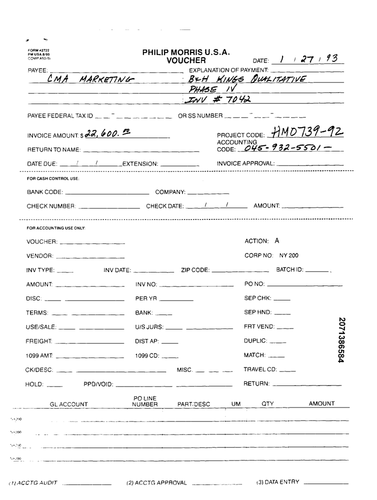 FORM 42722
PHILIP MORRIS U.S.A.
VOUCHER
DATE: 1 / 27 / 93
PAYEE: EXPLANATION OF PAYMENT:
CMA MARKETING B&H KINGS QUALITATIVE
PHASE IV
INV # 7042
PAYEE FEDERAL TAX ID OR SS NUMBER
INVOICE AMOUNT $ 22,600. PROJECT CODE: HMO739-92
RETURN TO NAME: ACCOUNTING CODE: 045-932-5501-
DATE DUE: / / EXTENSION: INVOICE APPROVAL:
FOR CASH CONTROL USE.
BANK CODE: COMPANY:
CHECK NUMBER: CHECK DATE: / / AMOUNT:
FOR ACCOUNTING USE ONLY.
VOUCHER: ACTION: A
VENDOR: CORP NO: NY 200
INV TYPE: INV DATE: ZIP CODE: BATCH ID:
AMOUNT: INV NO: PO NO:
DISC: PER YR SEP CHK:
TERMS: BANK: SEP HNO:
USE/SALE: U/S JURS: FRT VEND:
FREIGHT: DIST AP: DUPLIC:
1099 AMT: 1099 CD: MATCH:
CK/DESC: MISC. TRAVEL CD:
HOLD: PPD/VOID: RETURN:
GL ACCOUNT PO LINE NUMBER PART/DESC UM QTY AMOUNT
(1) ACCTG AUDIT (2) ACCTG APPROVAL (3) DATA ENTRY
2071386584